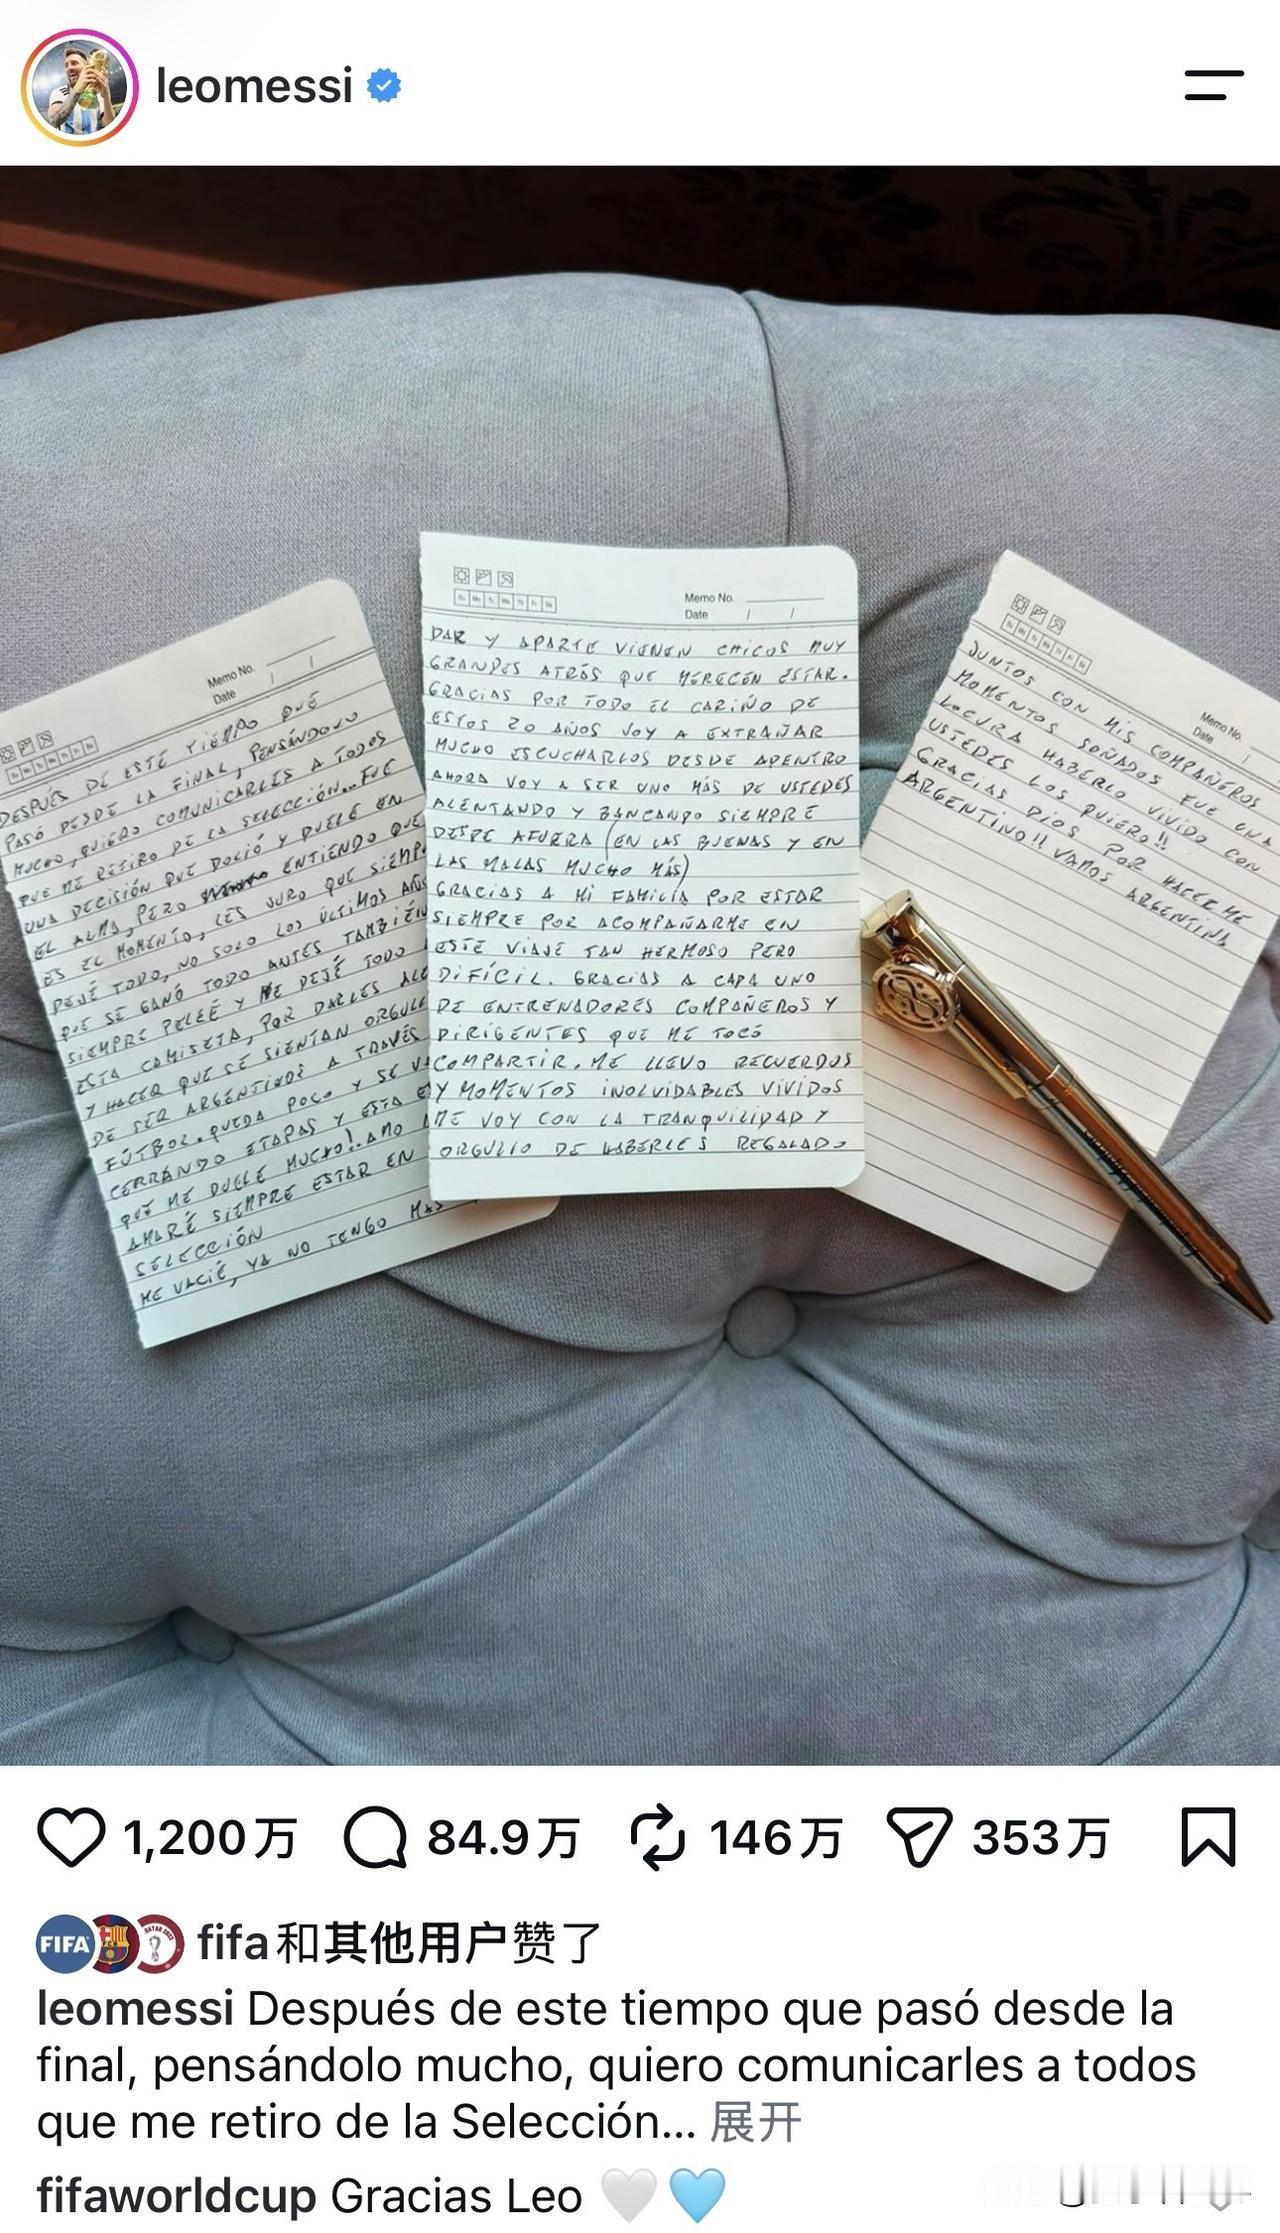 leomessi
Memo No.
Date / /
DESPUÉS DE ESTE TIEMPO QUE
PASÓ DESDE LA FINAL, PENSÁNDOLO
MUCHO, QUIERO COMUNICARLES A TODOS
QUE ME RETIRO DE LA SELECCIÓN... FUE
UNA DECISIÓN QUE DOLIÓ Y DUELE EN
EL ALMA, PERO ENTIENDO QUE
ES EL MOMENTO, LES JURO QUE SIEMP
DEJÉ TODO, NO SOLO LOS ÚLTIMOS AÑ
QUE SE GANÓ TODO ANTES TAMBIÉN
SIEMPRE PELEÉ Y ME DEJÉ TODO
ESTA CAMISETA, POR DARLES ALE
Y HACER QUE SE SIENTAN ORGULL
DE SER ARGENTINOS A TRAVÉS
FÚTBOL. QUEDA POCO Y SE V
CERRANDO ETAPAS Y ESTA E
QUE ME DUELE MUCHO!. AMO
AMARÉ SIEMPRE ESTAR EN
SELECCIÓN
ME VACIÉ, YA NO TENGO MAS
Memo No.
Date / /
DAR Y APARTE VIENEN CHICOS MUY
GRANDES ATRÁS QUE MERECEN ESTAR.
GRACIAS POR TODO EL CARIÑO DE
ESTOS 20 AÑOS VOY A EXTRAÑAR
MUCHO ESCUCHARLOS DESDE ADENTRO
AHORA VOY A SER UNO MÁS DE USTEDES
ALENTANDO Y BANCANDO SIEMPRE
DESDE AFUERA (EN LAS BUENAS Y EN
LAS MALAS MUCHO MÁS)
GRACIAS A MI FAMILIA POR ESTAR
SIEMPRE POR ACOMPAÑARME EN
ESTE VIAJE TAN HERMOSO PERO
DIFÍCIL. GRACIAS A CADA UNO
DE ENTRENADORES COMPAÑEROS Y
DIRIGENTES QUE ME TOCÓ
COMPARTIR. ME LLEVO RECUERDOS
Y MOMENTOS INOLVIDABLES VIVIDOS
ME VOY CON LA TRANQUILIDAD Y
ORGULLO DE HABERLES REGALADO
Memo No.
Date /
JUNTOS CON MIS COMPAÑEROS
MOMENTOS SOÑADOS FUE UNA
LOCURA HABERLO VIVIDO CON
USTEDES LOS QUIERO!!
GRACIAS DIOS POR HACERME
ARGENTINO!! VAMOS ARGENTINA
1,200万 84.9万 146万 353万
FIFA
fifa和其他用户赞了
leomessi Después de este tiempo que pasó desde la
final, pensándolo mucho, quiero comunicarles a todos
que me retiro de la Selección... 展开
fifaworldcup Gracias Leo 🤍🩵